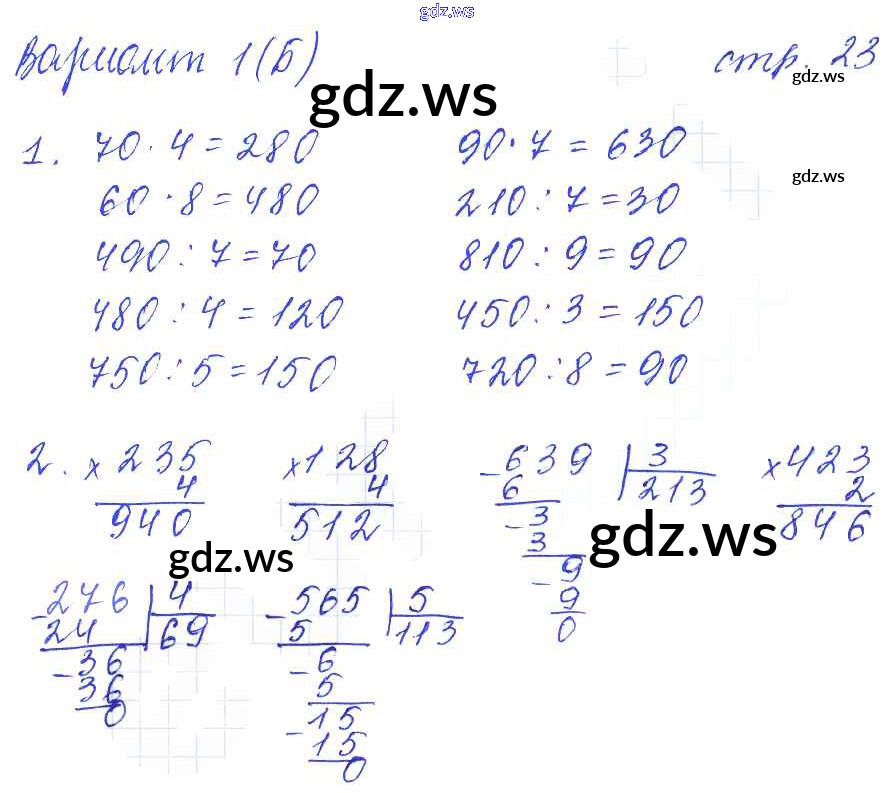 gdz.ws
Вариант 1(Б) стр. 23
gdz.ws
gdz.ws
1. 70 · 4 = 280 90 · 7 = 630
gdz.ws
60 · 8 = 480 210 : 7 = 30
490 : 7 = 70 810 : 9 = 90
480 : 4 = 120 450 : 3 = 150
750 : 5 = 150 720 : 8 = 90
2. × 235 × 128 - 639 | 3 × 423
4 4 6 213 2
940 512 - 3 846
3
gdz.ws
gdz.ws
- 9
9
0
- 276 | 4 - 565 | 5
24 69 5 113
- 36 - 6
36 5
0 - 15
15
0